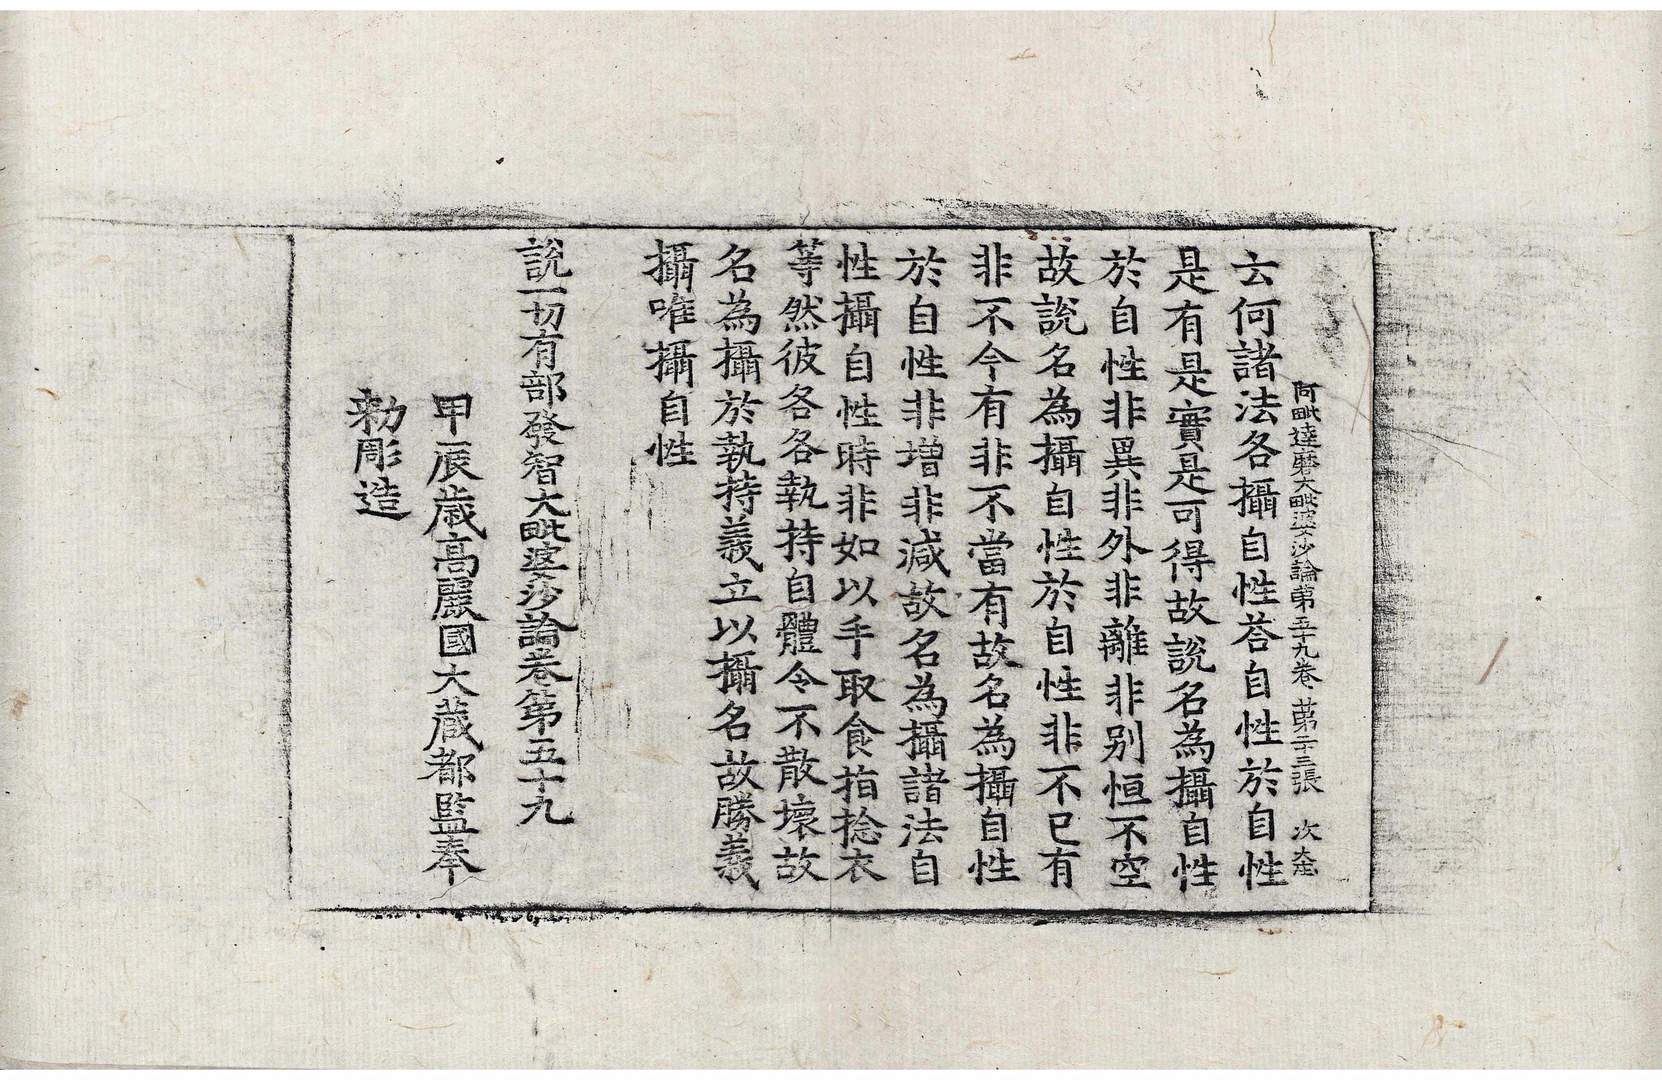 阿毗達磨大毗婆沙論第五十九卷 第二十三張 次
云何諸法各攝自性荅自性於自性
是有是實是可得故說名為攝自性
於自性非異非外非離非別恒不空
故說名為攝自性於自性非不已有
非不今有非不當有故名為攝自性
於自性非增非減故名為攝諸法自
性攝自性時非如以手取食指捻衣
等然彼各各執持自體令不散壞故
名為攝於執持義立以攝名故勝義
攝唯攝自性
說一切有部發智大毗婆沙論卷第五十九
甲辰歲高麗國大藏都監奉
勅彫造